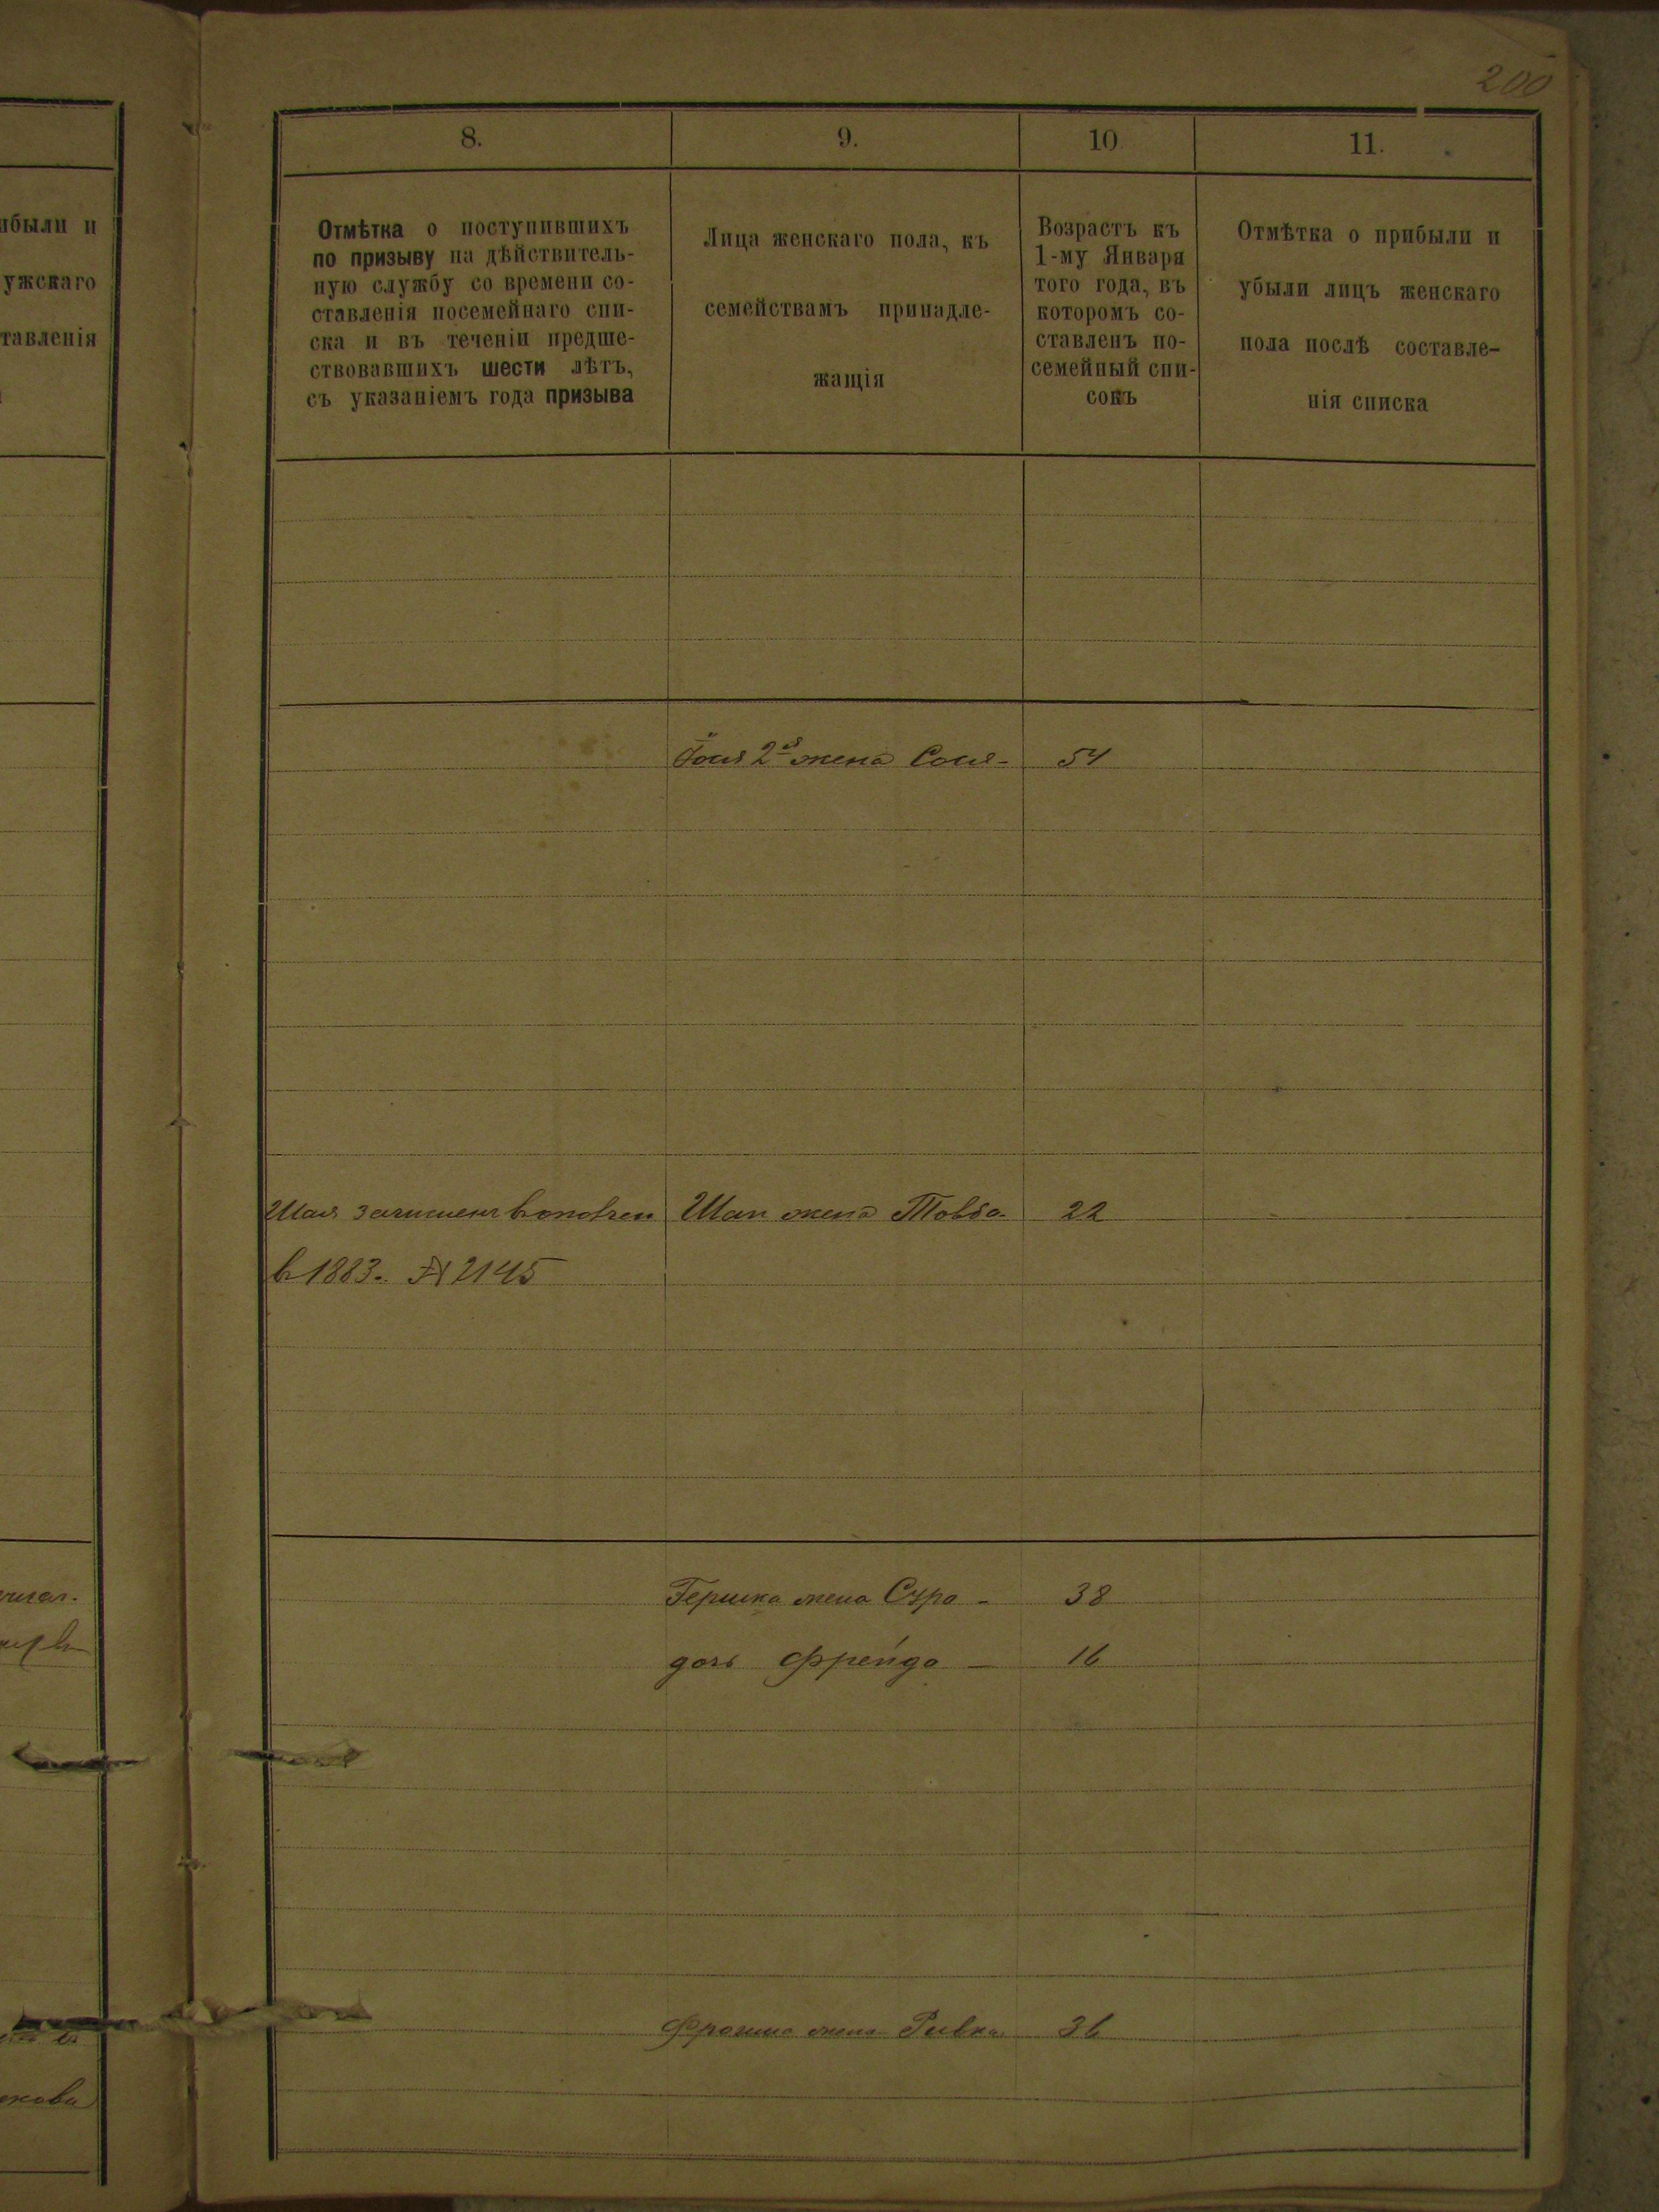 200
8.
9.
10
11.
Отмѣтка о поступившихъ
по призыву на дѣйствитель-
ную службу со времени со-
ставленія посемейнаго спи-
ска и въ теченіи предше-
ствовавшихъ шести лѣтъ,
съ указаніемъ года призыва
Лица женскаго пола, къ
семействамъ принадле-
жащія
Возрастъ къ
1-му Января
того года, въ
которомъ со-
ставленъ по-
семейный спи-
сокъ
Отмѣтка о прибыли и
убыли лицъ женскаго
пола послѣ составле-
нія списка
ибыли и
ужскаго
тавленія
2я жена Сося - 54
Шая зачисленъ в ополчен
Шаи жена Товба 22
в 1883. № 2145
Гершка жена Сура - 38
дочь Фрейда - 16
жена Ривка 36